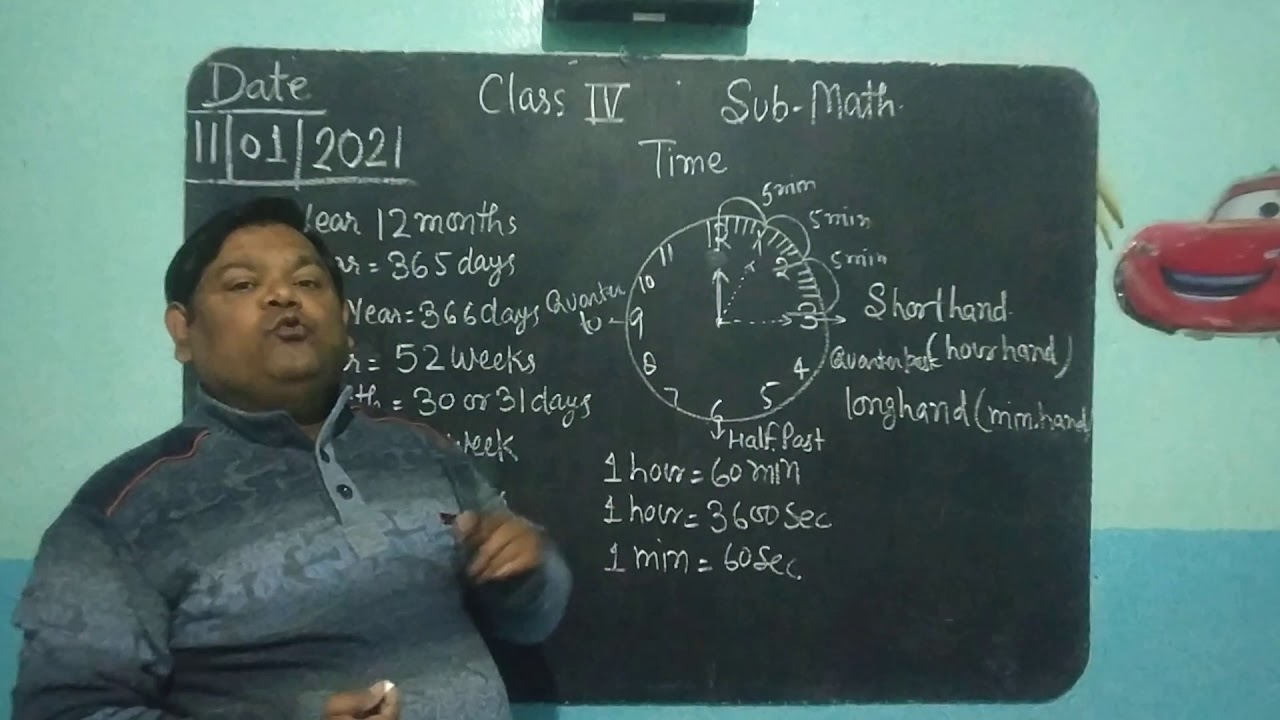 Date
11/01/2021
Class IV
Sub-Math
Time
Year 12 months
= 365 days
Year = 366 days
= 52 weeks
= 30 or 31 days
week
5 min
5 min
5 min
12
1
2
3
4
5
6
7
8
9
10
11
Quarter
to
Short hand
(hour hand)
Quarter past
long hand (min. hand
Half Past
1 hour = 60 min
1 hour = 3600 Sec
1 min = 60 Sec.